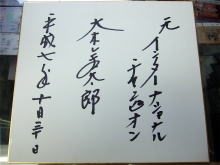 元 インターナショナル
チャンピオン
大木金太郎
平成七年十月三十日